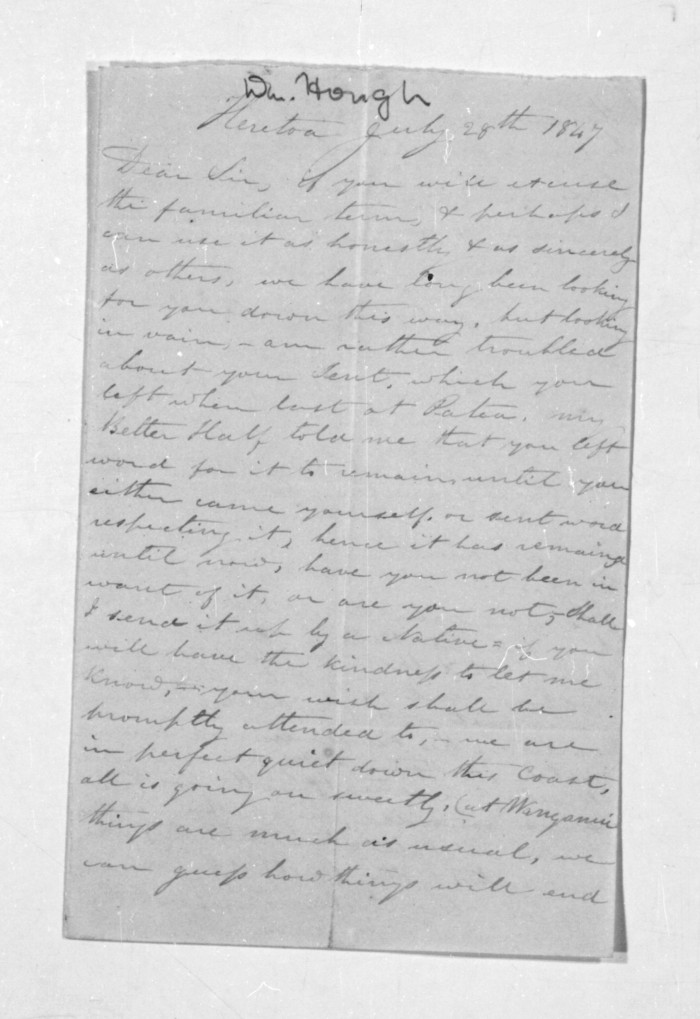 Wm. Hough
Heretoa July 28th 1847
Dear Sir, if you will excuse
the familiar term, & perhaps I
can use it as honestly & as sincerely
as others, we have long been looking
for you down this way, but looking
in vain, - am rather troubled
about your Tent, which you
left when last at Patea. my
Better Half, told me that you left
word for it to remain, until you
either came yourself, or sent word
respecting it, hence it has remaind
until now, have you not been in
want of it, or are you not, Shall
I send it up by a Native = if you
will have the kindness to let me
know, - your wish shall be
promptly attended to, - we are
in perfect quiet down this Coast,
all is going on sweetly, (at Wanganui
things are much as usual, we
can guess how things will end